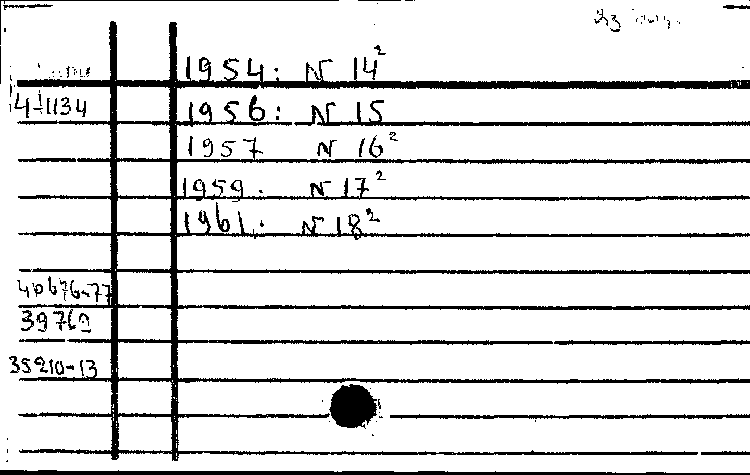 1954: N 14²
4-1134 1956: N 15
1957 N 16²
1959. N 17²
1961. N 18²
40676-77
39769
35210-13